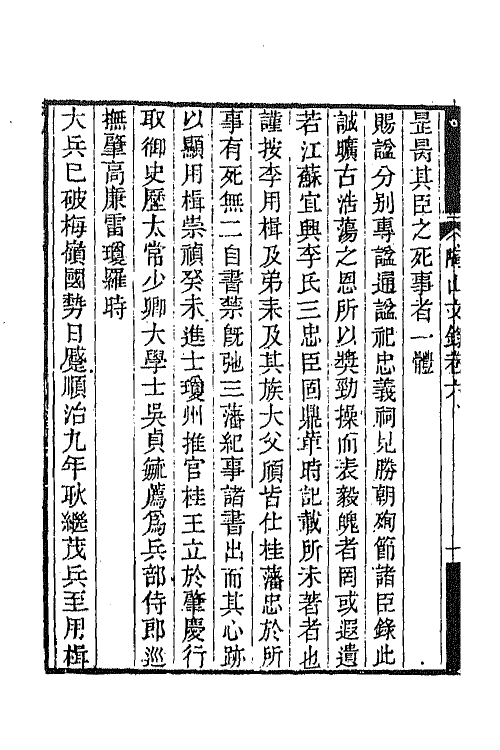 陶山文錄卷六
昰昺其臣之死事者一體
賜諡分別專諡通諡祀忠義祠見勝朝殉節諸臣錄此
誠曠古浩蕩之恩所以獎勁操而表毅魄者罔或遐遺
若江蘇宜興李氏三忠臣固鼎革時記載所未著者也
謹按李用楫及弟耒及其族大父頎皆仕桂藩忠於所
事有死無二自書禁既弛三藩紀事諸書出而其心跡
以顯用楫崇禎癸未進士瓊州推官桂王立於肇慶行
取御史歷太常少卿大學士吳貞毓薦為兵部侍郎巡
撫肇高廉雷瓊羅時
大兵已破梅嶺國勢日蹙順治九年耿繼茂兵至用楫